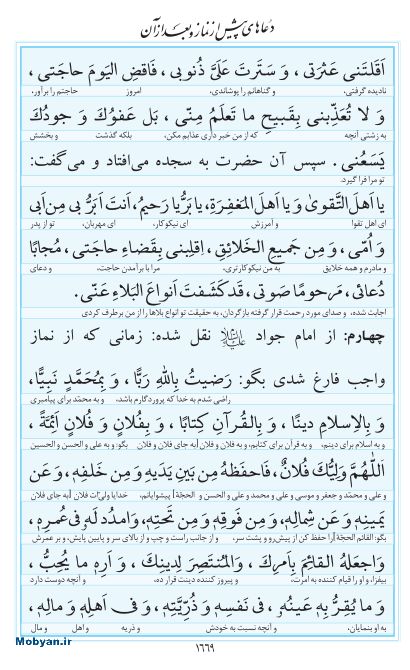 دعاهای پیش از نماز و بعد از آن
اَقَلتَنی عَثرَتی ، وَ سَتَرتَ عَلَیَّ ذُنوبی ، فَاقضِ الیَومَ حاجَتی ،
نادیده گرفتی، و گناهانم را پوشاندی، امروز حاجتم را برآور،
وَ لا تُعَذِّبنی بِقَبیحِ ما تَعلَمُ مِنّی ، بَل عَفوُكَ وَ جودُكَ
به زشتی آنچه که از من خبر داری عذابم مکن، بلکه گذشت و بخشش
یَسَعُنی . سپس آن حضرت به سجده می‌افتاد و می‌گفت:
تو مرا فرا گیرد.
یا اَهلَ التَّقویٰ وَ یا اَهلَ المَغفِرَةِ، یا بَرُّ یا رَحیمُ، اَنتَ اَبَرُّ بی مِن اَبی
ای اهل تقوا و آمرزش ای نیکوکار، ای مهربان، تو از پدر
وَ اُمّی ، وَ مِن جَمیعِ الخَلائِقِ ، اِقلِبنی بِقَضاءِ حاجَتی ، مُجابًا
و مادرم و همه خلایق به من نیکوکارتری، مرا با برآمدن حاجت، و دعای
دُعائی ، مَرحومًا صَوتی ، قَد كَشَفتَ اَنواعَ البَلاءِ عَنّی .
اجابت شده، و صدای مورد رحمت قرار گرفته بازگردان، به حقیقت تو انواع بلاها را از من برطرف کردی
چهارم: از امام جواد علیه‌السلام نقل شده: زمانی که از نماز
واجب فارغ شدی بگو: رَضیتُ بِاللهِ رَبًّا ، وَ بِمُحَمَّدٍ نَبیًّا ،
راضی شدم به خدا که پروردگارم باشد، و به محمّد برای پیامبری
وَ بِالاِسلامِ دینًا ، وَ بِالقُرآنِ كِتابًا ، وَ بِفُلانٍ وَ فُلانٍ اَئِمَّةً ،
و به اسلام برای دینم، و به قرآن برای کتابم، و به فلان و فلان أئمّه جای فلان و فلان بگو: و به علی و الحسن و الحسین
اَللّٰهُمَّ وَلِیُّكَ فُلانٌ ، فَاحفَظهُ مِن بَینِ یَدَیهِ وَ مِن خَلفِهٖ ، وَ عَن
و علی و محمّد و جعفر و موسی و علی و محمد و علی و الحسن و الحجّة أ پیشوایانم، خدایا ولی‌ّات فلان أبه جای فلان
یَمینِهٖ وَ عَن شِمالِهٖ، وَ مِن فَوقِهٖ وَ مِن تَحتِهٖ، وَ امدُد لَهٗ فی عُمرِهٖ،
بگو: القائم الحجّة أرا حفظ کن از پیش رو و پشت سر، و از جانب راست و چپ و از بالای سر و پایین پایش، و بر عمرش
وَ اجعَلهُ القائِمَ بِاَمرِكَ ، وَ المُنتَصِرَ لِدینِكَ ، وَ اَرِهٖ ما یُحِبُّ ،
بیفزا، و او را قیام کننده به امرت، و پیروز کننده دینت قرار ده، و آنچه دوست دارد
وَ ما یُقَرُّ بِهٖ عَینُهٗ ، فی نَفسِهٖ وَ ذُرِّیَّتِهٖ، وَ فی اَهلِهٖ وَ مالِهٖ ،
به او بنمایان، و آنچه نسبت به خودش و ذریه و اهل و مال
۱۶۶۹
Mobyan.ir